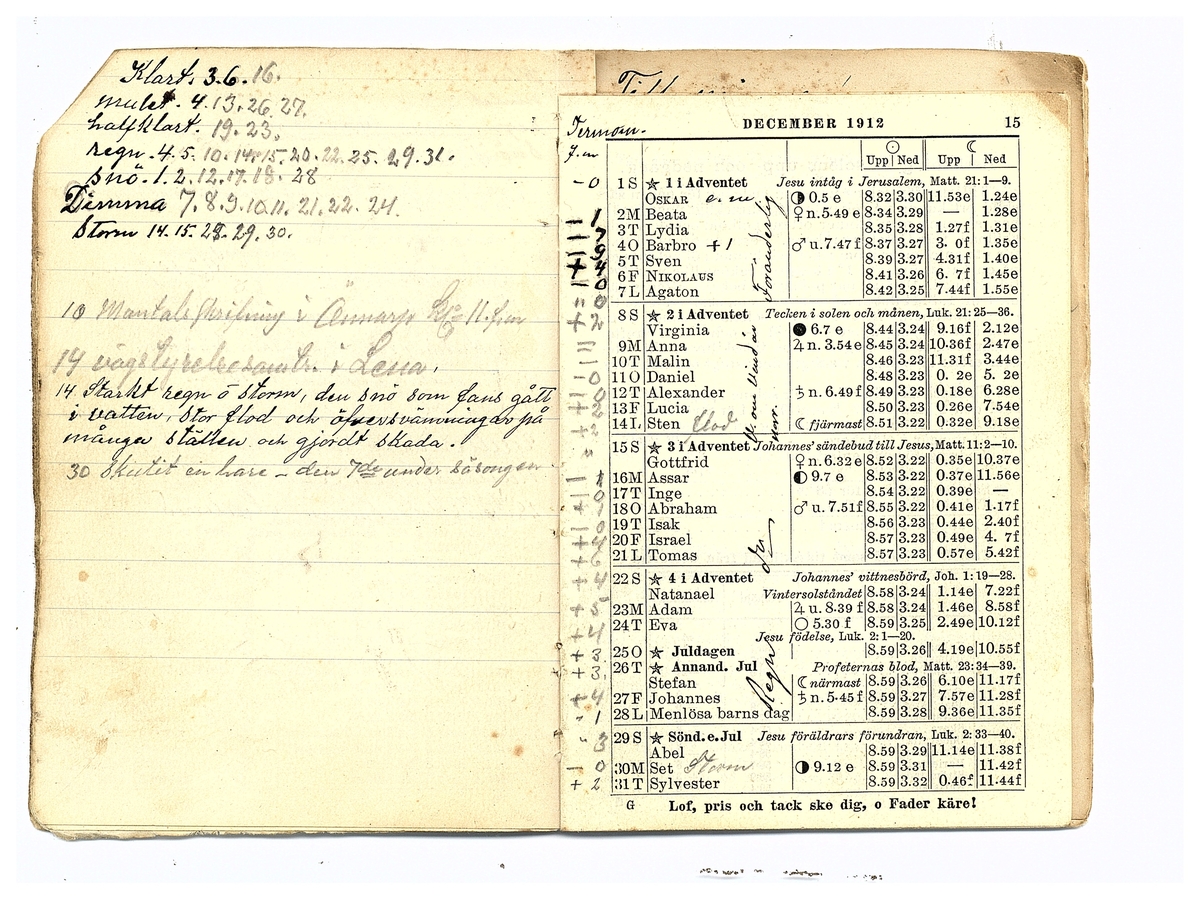 Klart. 3.6.16.
mulet. 4.13.26.27.
halfklart. 19.23.
regn. 4.5.10.14.15.20.22.25.29.31.
snö. 1.2.12.17.18.28
Dimma 7.8.9.10.11.21.22.24.
Storm 14.15.28.29.30.
10 Mantalsskrifning i Annarp Kl 11 f.m
14 vägstyrelsesamtr. i Lena.
14 Starkt regn o storm, den snö som fans gått
i vatten, stor flod och öfversvämningar på
många ställen och gjordt skada.
30 skutit en hare - den 7de under säsongen
Termom.
f.m
DECEMBER 1912 15
☉ ☾
Upp Ned Upp Ned
1 S ★ 1 i Adventet Jesu intåg i Jerusalem, Matt. 21:1—9.
OSKAR e.m ◑ 0.5 e 8.32 3.30 11.53e 1.24e
2 M Beata ♀ n. 5.49 e 8.34 3.29 — 1.28e
3 T Lydia 8.35 3.28 1.27f 1.31e
4 O Barbro +1 ♂ u. 7.47 f 8.37 3.27 3. 0f 1.35e
5 T Sven 8.39 3.27 4.31f 1.40e
6 F NIKOLAUS 8.41 3.26 6. 7f 1.45e
7 L Agaton 8.42 3.25 7.44f 1.55e
Föränderlig
8 S ★ 2 i Adventet Tecken i solen och månen, Luk. 21:25—36.
Virginia ● 6.7 e 8.44 3.24 9.16f 2.12e
9 M Anna ♃ n. 3.54 e 8.45 3.24 10.36f 2.44e
10 T Malin 8.46 3.23 11.31f 3.44e
11 O Daniel 8.48 3.23 0. 2e 5. 2e
12 T Alexander ♄ n. 6.49 f 8.49 3.23 0.18e 6.28e
13 F Lucia 8.50 3.23 0.26e 7.54e
14 L Sten flod ☾ fjärmast 8.51 3.22 0.32e 9.18e
15 S ★ 3 i Adventet Johannes' sändebud till Jesus, Matt. 11:2—10.
Gottfrid ♀ n. 6.32 e 8.52 3.22 0.35e 10.37e
16 M Assar ◐ 9.7 e 8.53 3.22 0.37e 11.56e
17 T Inge 8.54 3.22 0.39e —
18 O Abraham ♂ u. 7.51 f 8.55 3.22 0.41e 1.17f
19 T Isak 8.56 3.23 0.44e 2.40f
20 F Israel 8.57 3.23 0.49e 4. 7f
21 L Tomas 8.57 3.23 0.57e 5.42f
22 S ★ 4 i Adventet Johannes' vittnesbörd, Joh. 1:19—28.
Natanael Vintersolståndet 8.58 3.24 1.14e 7.22f
23 M Adam ♃ u. 8.39 f 8.58 3.24 1.46e 8.58f
24 T Eva ○ 5.30 f 8.59 3.25 2.49e 10.12f
Jesu födelse, Luk. 2:1—20.
25 O ★ Juldagen 8.59 3.26 4.19e 10.55f
26 T ★ Annand. Jul Profeternas blod, Matt. 23:34—39.
Stefan ☾ närmast 8.59 3.26 6.10e 11.17f
27 F Johannes ♄ n. 5.45 f 8.59 3.27 7.57e 11.28f
28 L Menlösa barns dag 8.59 3.28 9.36e 11.35f
Regn
29 S ★ Sönd. e. Jul Jesu föräldrars förundran, Luk. 2:33—40.
Abel 8.59 3.29 11.14e 11.38f
30 M Set Storm ◑ 9.12 e 8.59 3.31 — 11.42f
31 T Sylvester 8.59 3.32 0.46f 11.44f
G Lof, pris och tack ske dig, o Fader käre!